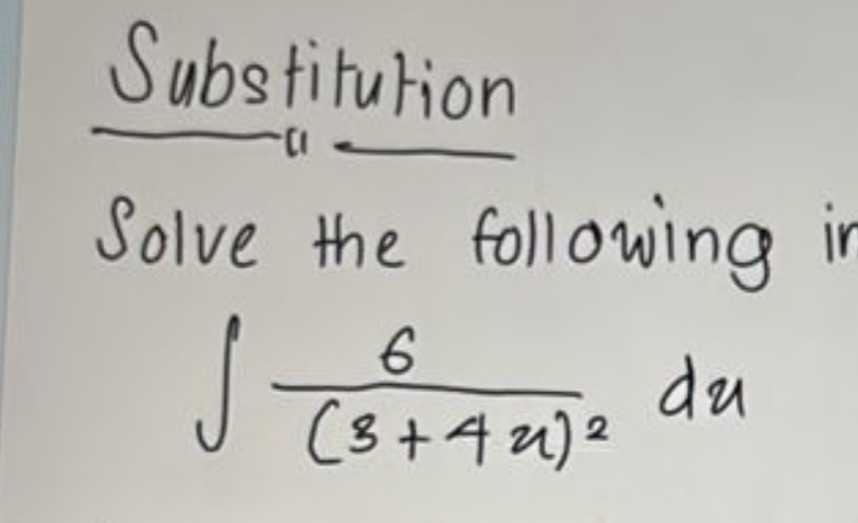 Substitution
Solve the following in
∫ 6 / (3+4x)² dx